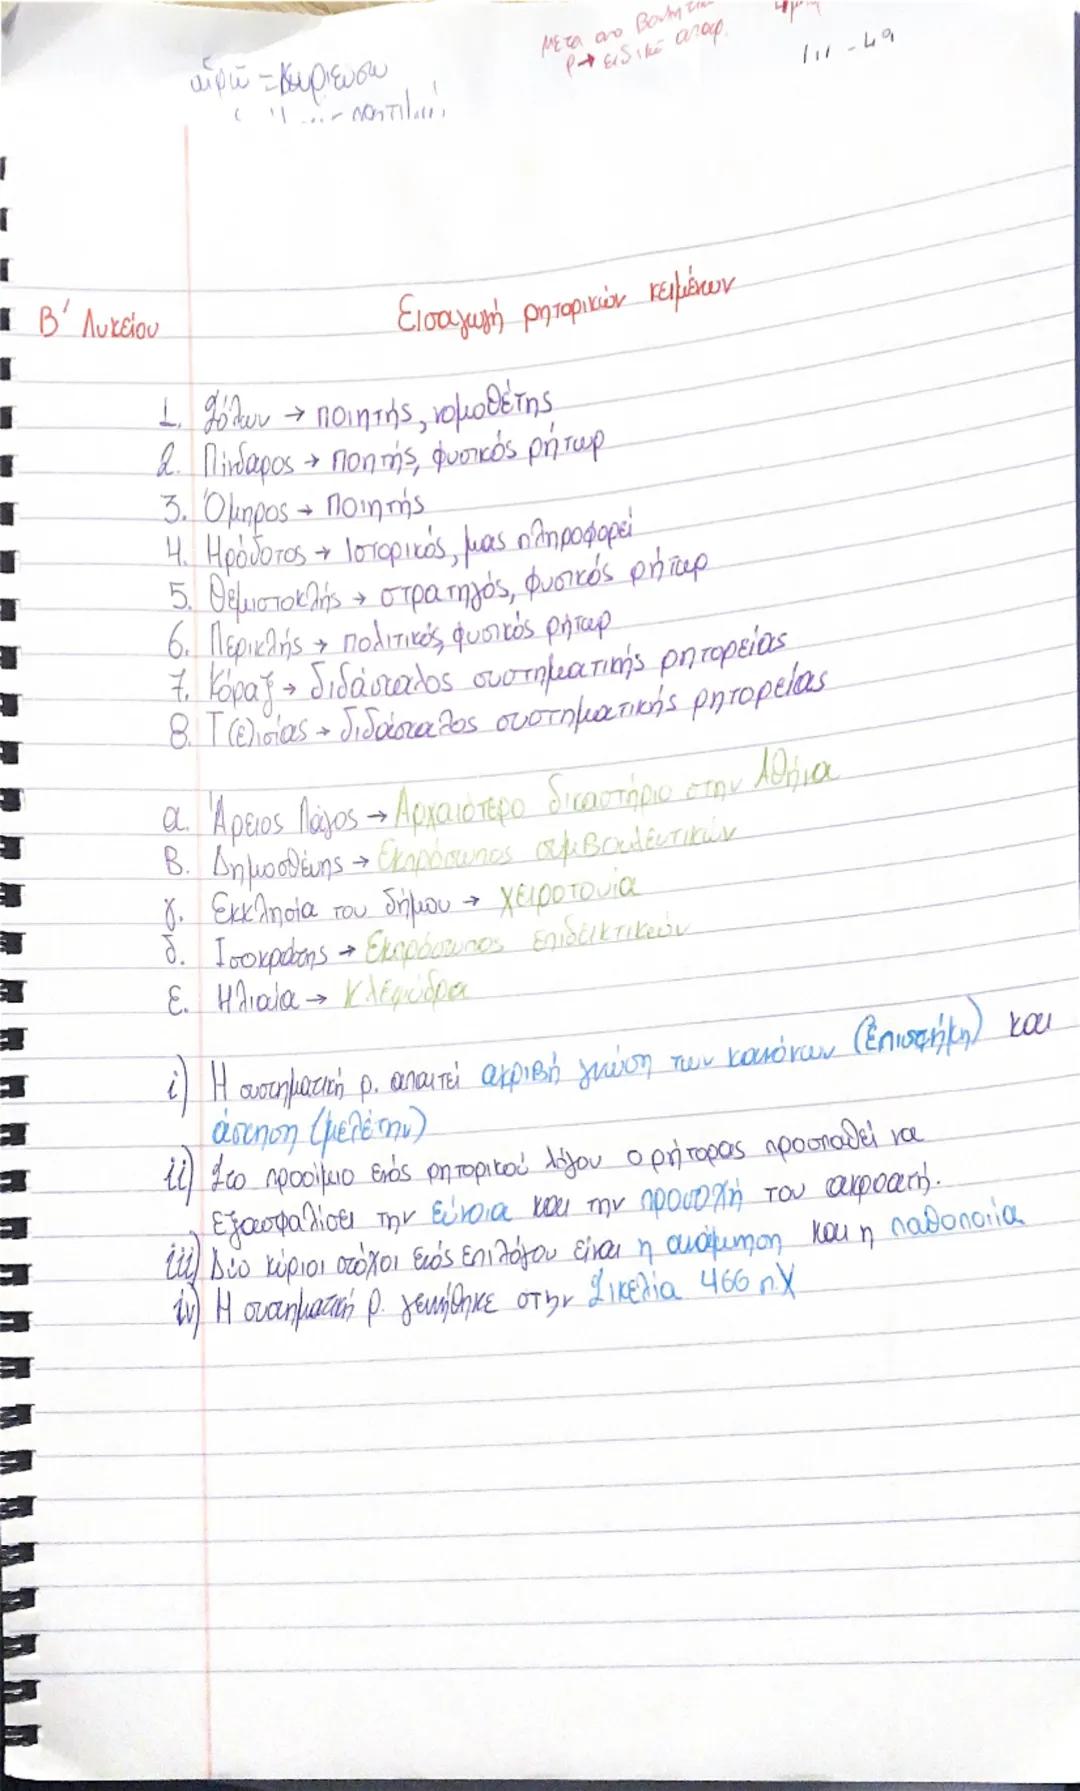 μετα απο
ρ → ειδικό απαρ.
111 - 49
αἱρῶ = κυριεύσω
Β' Λυκείου
Εισαγωγή ρητορικών κειμένων
1. Σόλων → ποιητής, νομοθέτης
2. Πίνδαρος → ποητής, φυσικός ρήτωρ
3. Όμηρος → ποιητής
4. Ηρόδοτος → Ιστορικός, μας πληροφορεί
5. Θεμιστοκλής → στρατηγός, φυσικός ρήτωρ
6. Περικλής → πολιτικός, φυσικός ρήτωρ
7. Κόραξ → διδάσκαλος συστηματικής ρητορείας
8. Τ(ε)ισίας → διδάσκαλος συστηματικής ρητορείας
α. Άρειος Πάγος → Αρχαιότερο δικαστήριο στην Αθήνα
Β. Δημοσθένης → Εκπρόσωπος συμβουλευτικών
γ. Εκκλησία του δήμου → χειροτονία
δ. Ισοκράτης → Εκπρόσωπος επιδεικτικών
ε. Ηλιαία → Κλεψύδρα
i) Η συστηματική ρ. απαιτεί ακριβή γνώση των κανόνων (Επιστήμη) και
άσκηση (μελέτην)
ii) Στο προοίμιο ενός ρητορικού λόγου ο ρήτορας προσπαθεί να
εξασφαλίσει την εύνοια και την προσοχή του ακροατή.
iii) Δύο κύριοι στόχοι ενός επιλόγου είναι η ανάμνηση και η παθοποιία
iv) Η συστηματική ρ. γεννήθηκε στην Σικελία 466 π.Χ